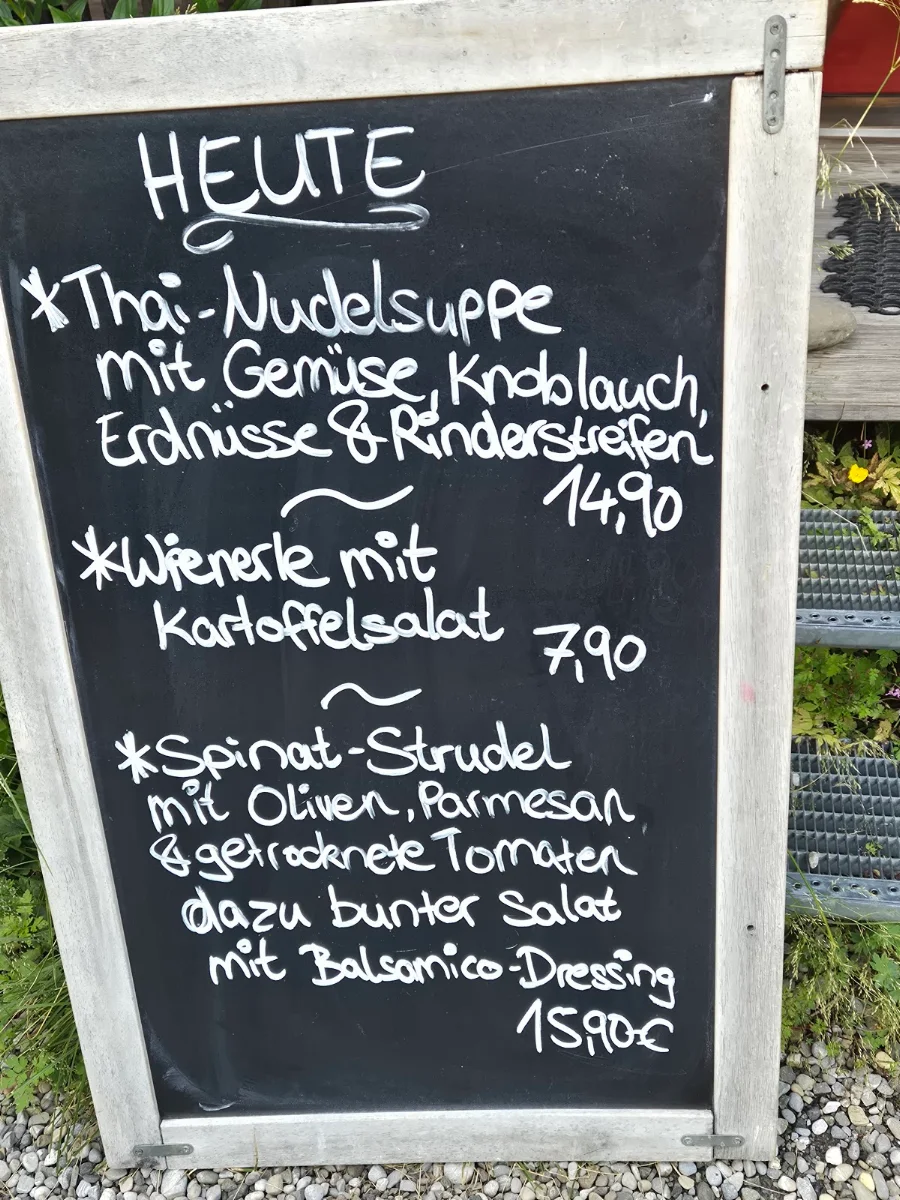 HEUTE
*Thai-Nudelsuppe
mit Gemüse, Knoblauch,
Erdnüsse & Rinderstreifen
14,90
~
*Wienerle mit
Kartoffelsalat
7,90
~
*Spinat-Strudel
mit Oliven, Parmesan
& getrocknete Tomaten
dazu bunter Salat
mit Balsamico-Dressing
15,90€